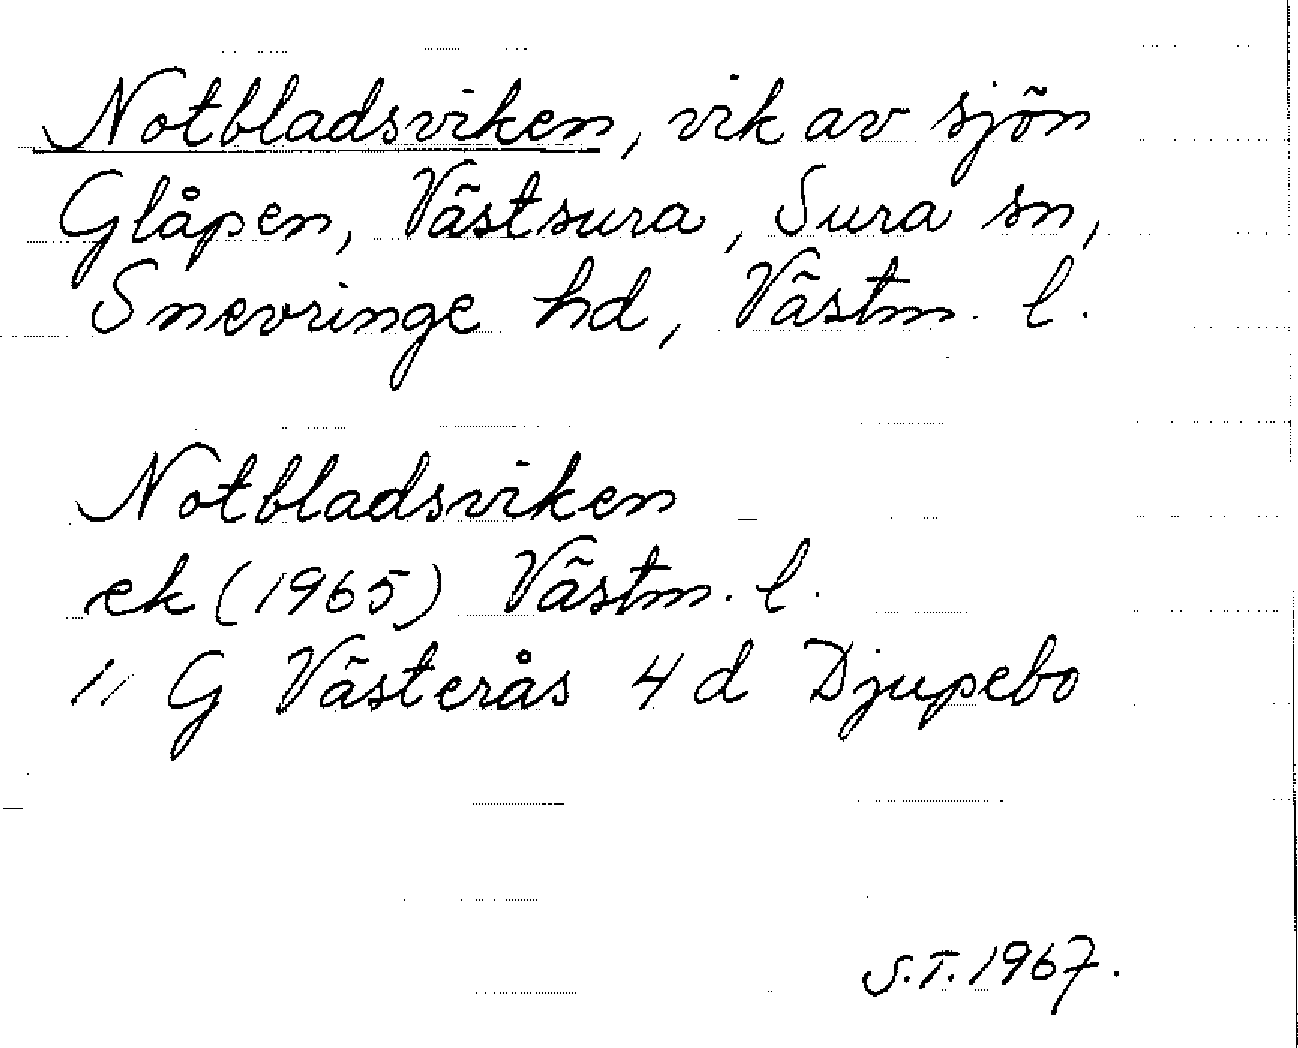 Notbladsviken, vik av sjön
Glåpen, Västsura, Sura sn,
Snevringe hd, Västm. l.
Notbladsviken
ek (1965) Västm. l.
11 G Västerås 4 d Djupebo
S.T. 1967.